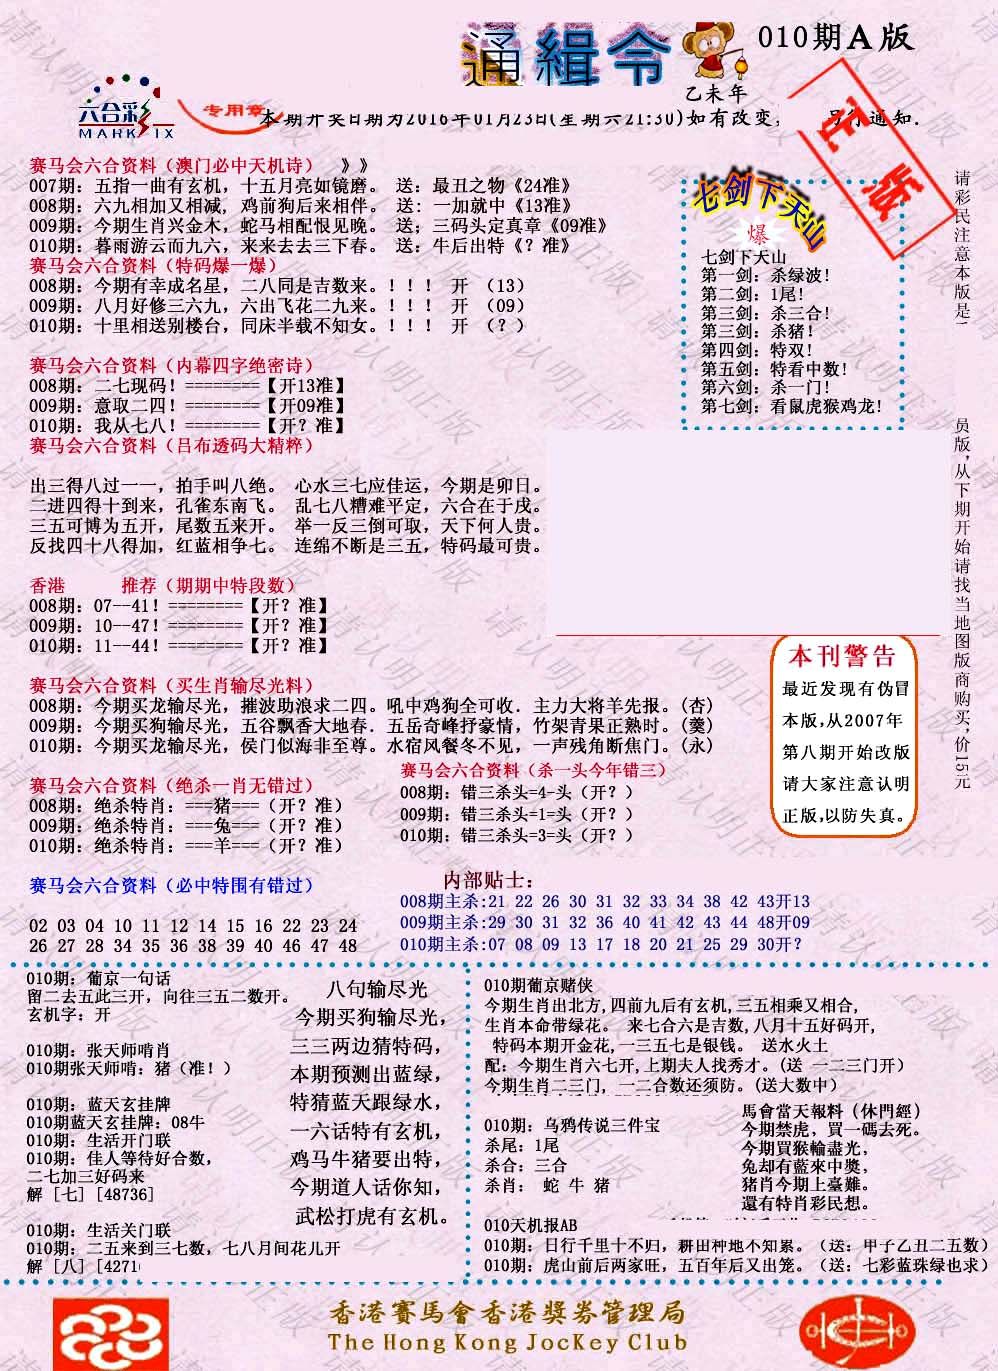 通緝令
010期A版
乙未年
六合彩
MARK SIX
专用章
本期开奖日期为2016年01月23日(星期六21:30)如有改变,
正版
赛马会六合资料（澳门必中天机诗） 》》
007期: 五指一曲有玄机，十五月亮如镜磨。 送: 最丑之物《24准》
008期: 六九相加又相减，鸡前狗后来相伴。 送: 一加就中《13准》
009期: 今期生肖兴金木，蛇马相配恨见晚。 送; 三码头定真章《09准》
010期: 暮雨游云而九六，来来去去三下春。 送: 牛后出特《? 准》
赛马会六合资料（特码爆一爆）
008期: 今期有幸成名星，二八同是吉数来。！！！ 开 （13）
009期: 八月好修三六九，六出飞花二九来。！！！ 开 （09）
010期: 十里相送别楼台，同床半载不知女。！！！ 开 （? ）
七剑下天山
爆
七剑下天山
第一剑: 杀绿波!
第二剑: 1尾!
第三剑: 杀三合!
第三剑: 杀猪!
第四剑: 特双!
第五剑: 特看中数!
第六剑: 杀一门!
第七剑: 看鼠虎猴鸡龙!
请彩民注意本版是
员版,从下期开始请找当地图版商购买,价15元
赛马会六合资料（内幕四字绝密诗）
008期: 二七现码! ========【开13准】
009期: 意取二四! ========【开09准】
010期: 我从七八! ========【开? 准】
赛马会六合资料（吕布透码大精粹）
出三得八过一一，拍手叫八绝。 心水三七应佳运，今期是卯日。
二进四得十到来，孔雀东南飞。 乱七八糟难平定，六合在于戌。
三五可博为五开，尾数五来开。 举一反三倒可取，天下何人贵。
反找四十八得加，红蓝相争七。 连绵不断是三五，特码最可贵。
香港 推荐（期期中特段数）
008期: 07--41! ========【开? 准】
009期: 10--47! ========【开? 准】
010期: 11--44! ========【开? 准】
赛马会六合资料（买生肖输尽光料）
008期: 今期买龙输尽光，摧波助浪求二四。吼中鸡狗全可收．主力大将羊先报。(杏)
009期: 今期买狗输尽光，五谷飘香大地春．五岳奇峰抒豪情，竹架青果正熟时。(羹)
010期: 今期买龙输尽光，侯门似海非至尊。水宿风餐冬不见，一声残角断焦门。(永)
本刊警告
最近发现有伪冒
本版,从2007年
第八期开始改版
请大家注意认明
正版,以防失真。
赛马会六合资料（绝杀一肖无错过）
008期: 绝杀特肖: ===猪===（开? 准）
009期: 绝杀特肖: ===兔===（开? 准）
010期: 绝杀特肖: ===羊===（开? 准）
赛马会六合资料（杀一头今年错三）
008期: 错三杀头=4-头（开? ）
009期: 错三杀头=1=头（开? ）
010期: 错三杀头=3=头（开? ）
赛马会六合资料（必中特围有错过）
02 03 04 10 11 12 14 15 16 22 23 24
26 27 28 34 35 36 38 39 40 46 47 48
内部贴士:
008期主杀:21 22 26 30 31 32 33 34 38 42 43开13
009期主杀:29 30 31 32 36 40 41 42 43 44 48开09
010期主杀:07 08 09 13 17 18 20 21 25 29 30开?
010期: 葡京一句话
留二去五此三开，向往三五二数开。
玄机字: 开
010期: 张天师啃肖
010期张天师啃: 猪（准! ）
010期: 蓝天玄挂牌
010期蓝天玄挂牌: 08牛
010期: 生活开门联
010期: 佳人等待好合数，
二七加三好码来
解 [七] [48736]
010期: 生活关门联
010期: 二五来到三七数，七八月间花儿开
解 [八] [4271
八句输尽光
今期买狗输尽光，
三三两边猜特码，
本期预测出蓝绿，
特猜蓝天跟绿水，
一六话特有玄机，
鸡马牛猪要出特，
今期道人话你知，
武松打虎有玄机。
010期葡京赌侠
今期生肖出北方,四前九后有玄机,三五相乘又相合,
生肖本命带绿花。 来七合六是吉数,八月十五好码开,
特码本期开金花,一三五七是银钱。 送水火土
配: 今期生肖六七开,上期夫人找秀才。(送 一二三门开)
今期生肖二三门, 一二合数还须防。(送大数中)
010期: 乌鸦传说三件宝
杀尾: 1尾
杀合: 三合
杀肖: 蛇 牛 猪
馬會當天報料（休門經）
今期禁虎，買一碼去死。
今期買猴輸盡光，
兔却有藍來中獎，
猪肖今期上臺難。
還有特肖彩民想。
010天机报AB
010期: 日行千里十不归，耕田种地不知累。（送: 甲子乙丑二五数）
010期: 虎山前后两家旺，五百年后又出笼。（送: 七彩蓝珠绿也求）
香港賽馬會香港獎券管理局
The Hong Kong Jockey Club